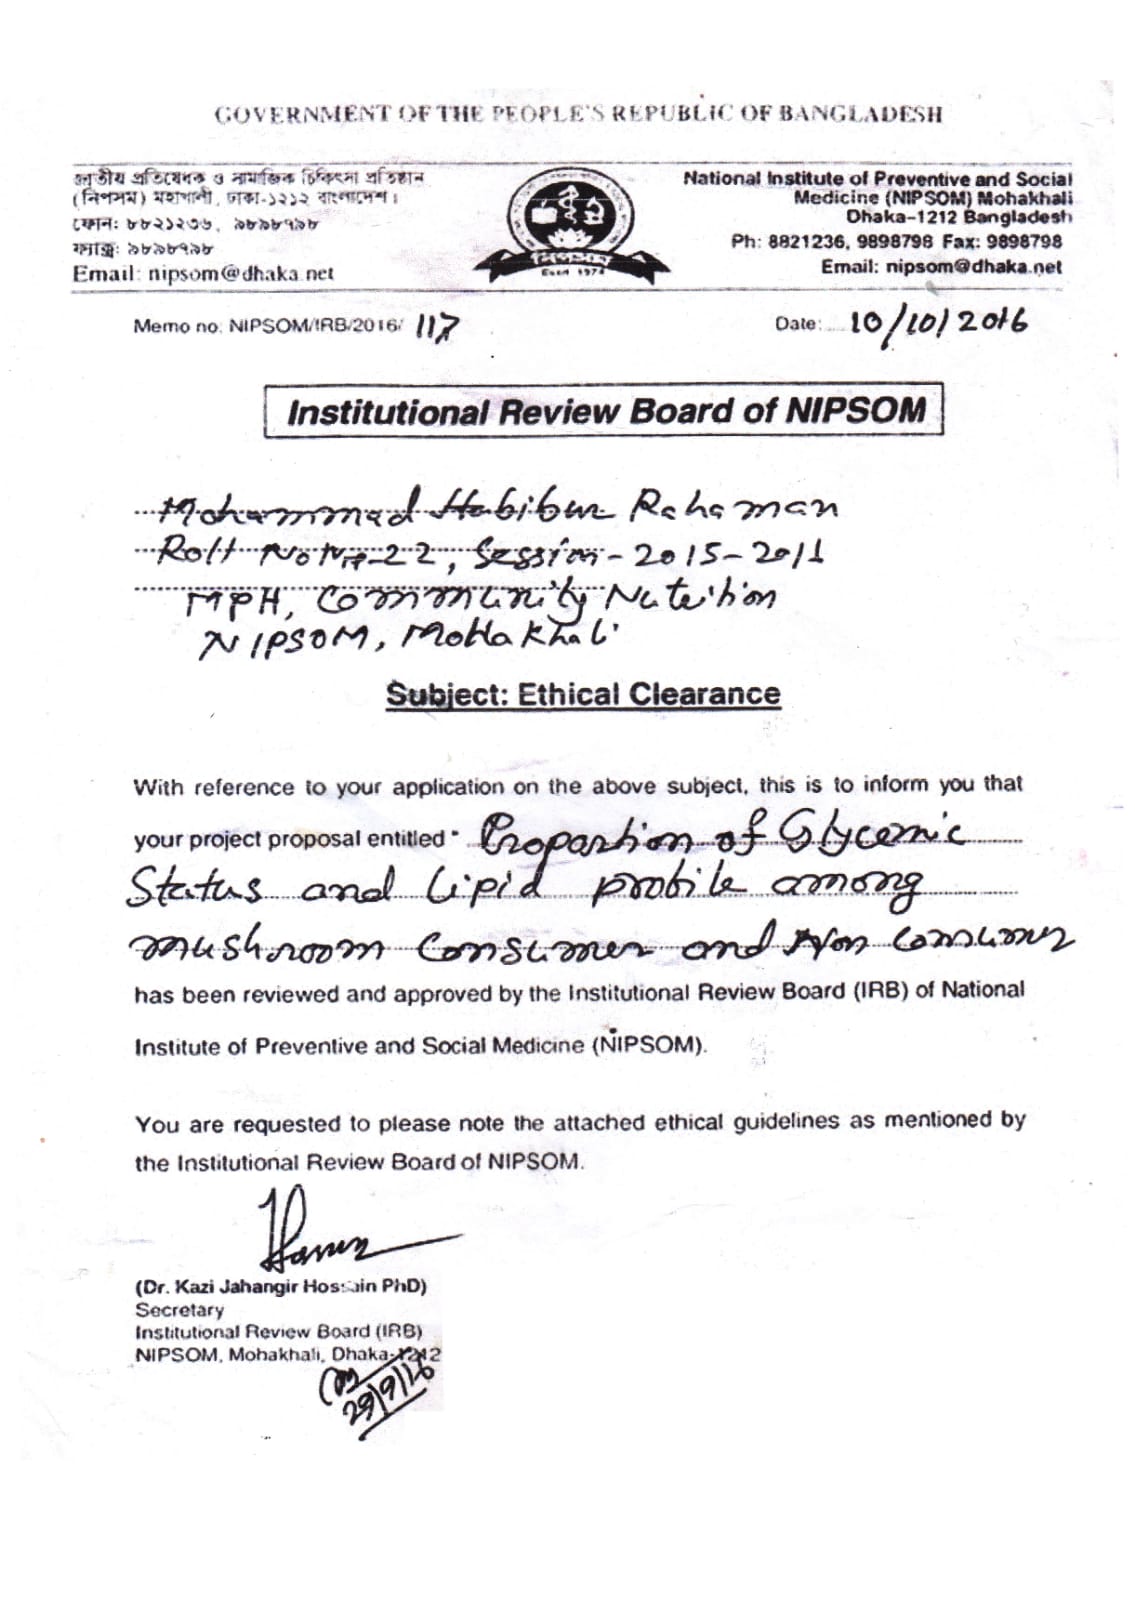 GOVERNMENT OF THE PEOPLE'S REPUBLIC OF BANGLADESH
জাতীয় প্রতিষেধক ও সামাজিক চিকিৎসা প্রতিষ্ঠান
(নিপসম) মহাখালী, ঢাকা-১২১২ বাংলাদেশ।
ফোন: ৮৮২১২৩৬, ৯৮৯৮৭৯৮
ফ্যাক্স: ৯৮৯৮৭৯৮
Email: nipsom@dhaka.net
Estd 1974
National Institute of Preventive and Social
Medicine (NIPSOM) Mohakhali
Dhaka-1212 Bangladesh
Ph: 8821236, 9898798 Fax: 9898798
Email: nipsom@dhaka.net
Memo no: NIPSOM/IRB/2016/ 117
Date: 10/10/2016
Institutional Review Board of NIPSOM
Mohammad Habibur Rahaman
Roll No 22, Session-2015-2011
MPH, Community Nutrition
NIPSOM, Mohakhali
Subject: Ethical Clearance
With reference to your application on the above subject, this is to inform you that
your project proposal entitled " Proportion of Glycemic
Status and lipid profile among
mushroom Consumer and Non Consumer
has been reviewed and approved by the Institutional Review Board (IRB) of National
Institute of Preventive and Social Medicine (NIPSOM).
You are requested to please note the attached ethical guidelines as mentioned by
the Institutional Review Board of NIPSOM.
(Dr. Kazi Jahangir Hossain PhD)
Secretary
Institutional Review Board (IRB)
NIPSOM, Mohakhali, Dhaka-1212
29/9/16